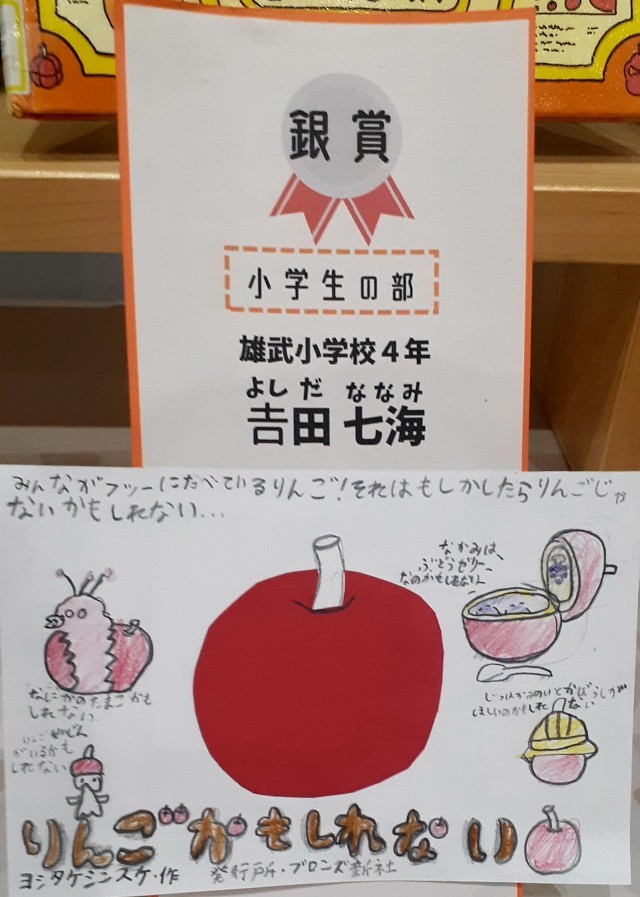 銀賞
小学生の部
雄武小学校4年
よしだ ななみ
𠮷田 七海
みんながフツーにたべているりんご!それはもしかしたらりんごじゃ
ないかもしれない...
なかみは、
ぶどうゼリー
なのかもしれない
なにかのたまごかも
しれない
じつはかみのけとかぼうしが
ほしいのかもしれない
りんごせいじん
がいるかも
しれない
りんごかもしれない
ヨシタケシンスケ・作 発行所・ブロンズ新社